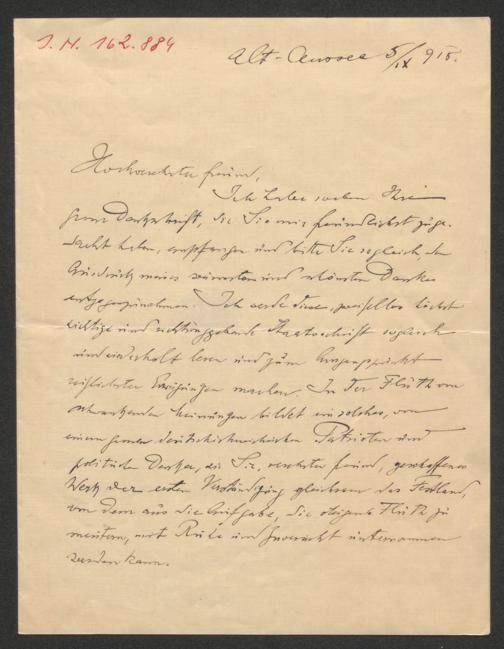 J. N. 162.884
Alt-Aussee 5/IX 915.
Hochverehrter Freund,
Ich habe soeben Ihre
Denkschrift, die Sie mir freundlichst zuge-
dacht haben, empfangen und bitte Sie sogleich, den
Ausdruck meines wärmsten und schönsten Dankes
entgegenzunehmen. Ich werde diese, zweifellos höchst
wichtige und richtunggebende Staatsschrift sogleich
und wiederholt lesen und zum Ausgangspunkt
reiflichster Erwägungen machen. In der Fluth von
schwankenden Meinungen bildet ein solches, von
einem deutschösterreichischen Patrioten und
politischen Denker, wie Sie, verehrter Freund, geschaffenes
Werk der ersten Verständigung gleichsam das Festland,
von dem aus die Aufgabe, die steigende Fluth zu
meistern, mit Ruhe und Zuversicht unternommen
werden kann.